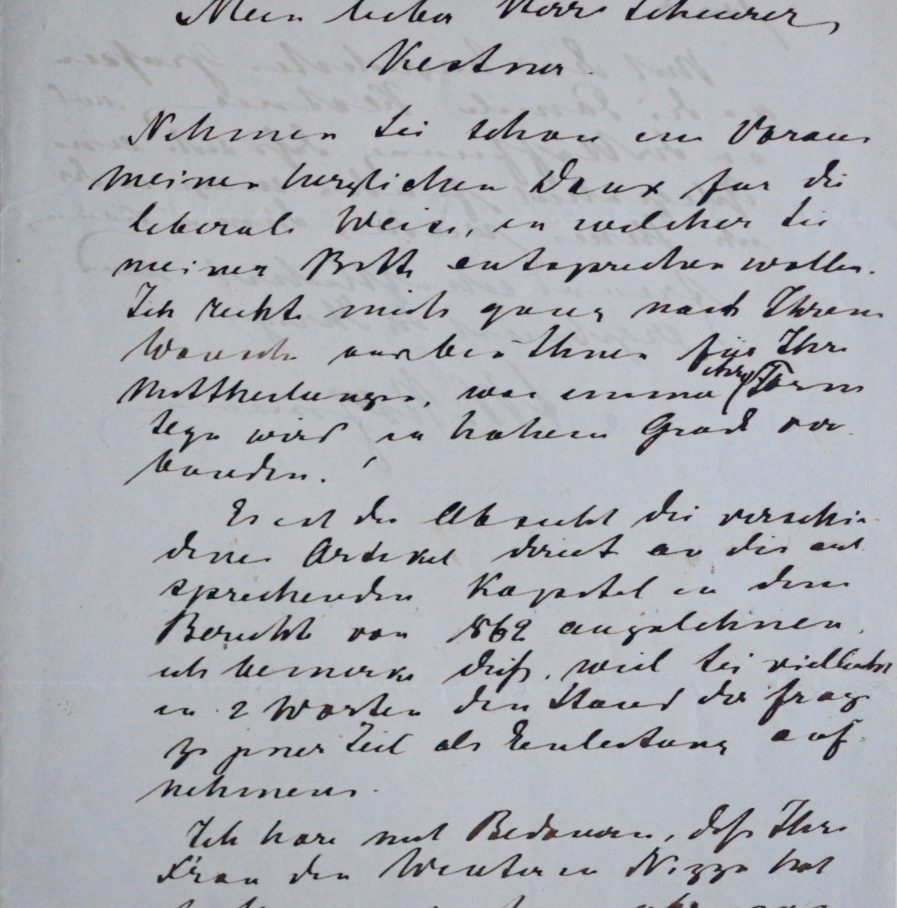 Mein lieber Herr Scheurer
Kestner.
Nehmen Sie schon im Voraus
meinen herzlichen Dank für die
liberale Weise, in welcher Sie
meiner Bitte entsprechen wollen.
Ich richte mich ganz nach Ihrem
Wunsch und bin Ihnen für Ihre
Mittheilungen, was immer ihre Form
seyn wird in hohem Grade ver
bunden.
Es ist die Absicht die verschie
denen Artikel direct an die ent
sprechenden Kapitel in dem
Berichte von 1862 anzulehnen.
ich bemerke dieß, weil Sie vielleicht
in 2 Worten den Stand der Frage
zu jener Zeit als Einleitung auf
nehmen.
Ich höre mit Bedauern, daß Ihre
Frau den Winter in Nizza hat